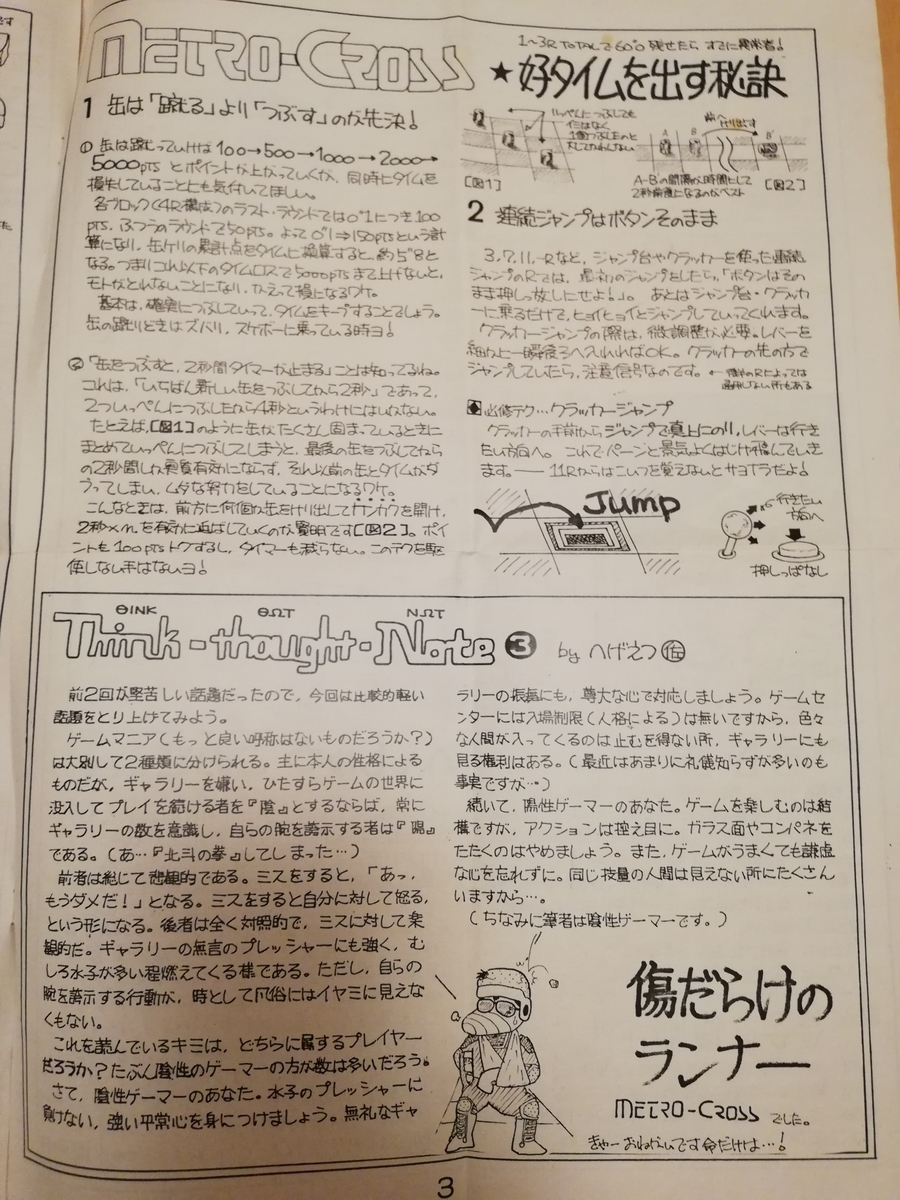 METRO-CROSS
1〜3R TOTALで60"0 残せたら すでに異常者!
★好タイムを出す秘訣
1 缶は「蹴る」より「つぶす」のが先決!
① 缶は蹴っていけば 100→500→1000→2000→
5000pts とポイントが上がっていくが、同時にタイムを
損失していることにも気付いてほしい。
各ブロック(4R構成)のラスト・ラウンドでは0"1につき100
pts. ふつうのラウンドで50pts. よって0"1⇒150ptsという計
算になり、缶ケリの累計点をタイムに換算すると、約5"8と
なる。つまりこれ以下のタイムロスで5000ptsまで上げないと、
モトがとれないことになり、かえって損になるワケ。
基本は、確実につぶしていって、タイムをキープすることでしょう。
缶の蹴りどきはズバリ、スケボーに乗っている時ヨ!
② 「缶をつぶすと、2秒間タイマーが止まる」ことは知ってるね。
これは、「いちばん新しい缶をつぶしてから2秒」であって、
2ついっぺんにつぶしたから4秒というわけにはいかない。
たとえば、[図1]のように缶がたくさん固まっているときに
まとめていっぺんにつぶしてしまうと、最後の缶をつぶしてから
の2秒間しか実質有効にならず、それ以前の缶とタイムがダ
ブってしまい、ムダな努力をしていることになるワケ。
こんなときは、前方に何個か缶をけり出してカンカクを開け、
2秒×n を有効に延ばしていくのが賢明です[図2]。ポイ
ントも100ptsトクするし、タイマーも減らない。このテクを駆
使しない手はないヨ!
いっぺんにつぶしても
1個つぶしたのと
大してかわんない
[図1]
前へけり出す
A B B'
A-B'の間隔が時間にして
2秒前後になるのがベスト
[図2]
2 連続ジャンプはボタンそのまま
3.7.11.-Rなど、ジャンプ台やクラッカーを使った連続
ジャンプのRでは、最初のジャンプをしたら、「ボタンはその
まま押しっ放しにせよ!」。あとはジャンプ台・クラッカ
ーに乗るだけで、ヒョイヒョイとジャンプしていってくれます。
クラッカージャンプの際は、微調整が必要。レバーを
細かに一瞬後ろへ入れればOK。クラッカーの先の方で
ジャンプしていたら、注意信号なのです。←後半のRによっては
通用しない所もある
必修テク…クラッカージャンプ
クラッカーの手前からジャンプで真上にのり、レバーは行き
たい方向へ。これでパーンと景気よくはじけ飛んでいき
ます。── 11Rからはこいつを覚えないとサヨナラだよ!
Jump
行きたい
方向へ
押しっぱなし
ΘINK ΘΩT NΩT
Think-thought-Note ❸ by へげえつ㊟
前2回が堅苦しい話題だったので、今回は比較的軽い
話題をとり上げてみよう。
ゲームマニア(もっと良い呼称はないものだろうか?)
は大別して2種類に分けられる。主に本人の性格による
ものだが、ギャラリーを嫌い、ひたすらゲームの世界に
没入してプレイを続ける者を『陰』とするならば、常に
ギャラリーの数を意識し、自らの腕を誇示する者は『陽』
である。(あ…『北斗の拳』してしまった…)
前者は総じて悲観的である。ミスをすると、「あっ、
もうダメだ!」となる。ミスをすると自分に対して怒る、
という形になる。後者は全く対照的で、ミスに対して楽
観的だ。ギャラリーの無言のプレッシャーにも強く、む
しろ水子が多い程燃えてくる様である。ただし、自らの
腕を誇示する行動が、時として凡俗にはイヤミに見えな
くもない。
これを読んでいるキミは、どちらに属するプレイヤー
だろうか?たぶん陰性のゲーマーの方が数は多いだろう。
さて、陰性ゲーマーのあなた。水子のプレッシャーに
負けない、強い平常心を身につけましょう。無礼なギャ
ラリーの振舞にも、尊大な心で対応しましょう。ゲームセ
ンターには入場制限(人格による)は無いですから、色々
な人間が入ってくるのは止むを得ない所、ギャラリーにも
見る権利はある。(最近はあまりに礼儀知らずが多いのも
事実ですが…)
続いて、陽性ゲーマーのあなた。ゲームを楽しむのは結
構ですが、アクションは控え目に。ガラス面やコンパネを
たたくのはやめましょう。また、ゲームがうまくても謙虚
な心を忘れずに。同じ技量の人間は見えない所にたくさん
いますから…。
(ちなみに筆者は陰性ゲーマーです。)
傷だらけの
ランナー
METRO-CROSS でした。
きゃーおねがいです命だけは…!
3